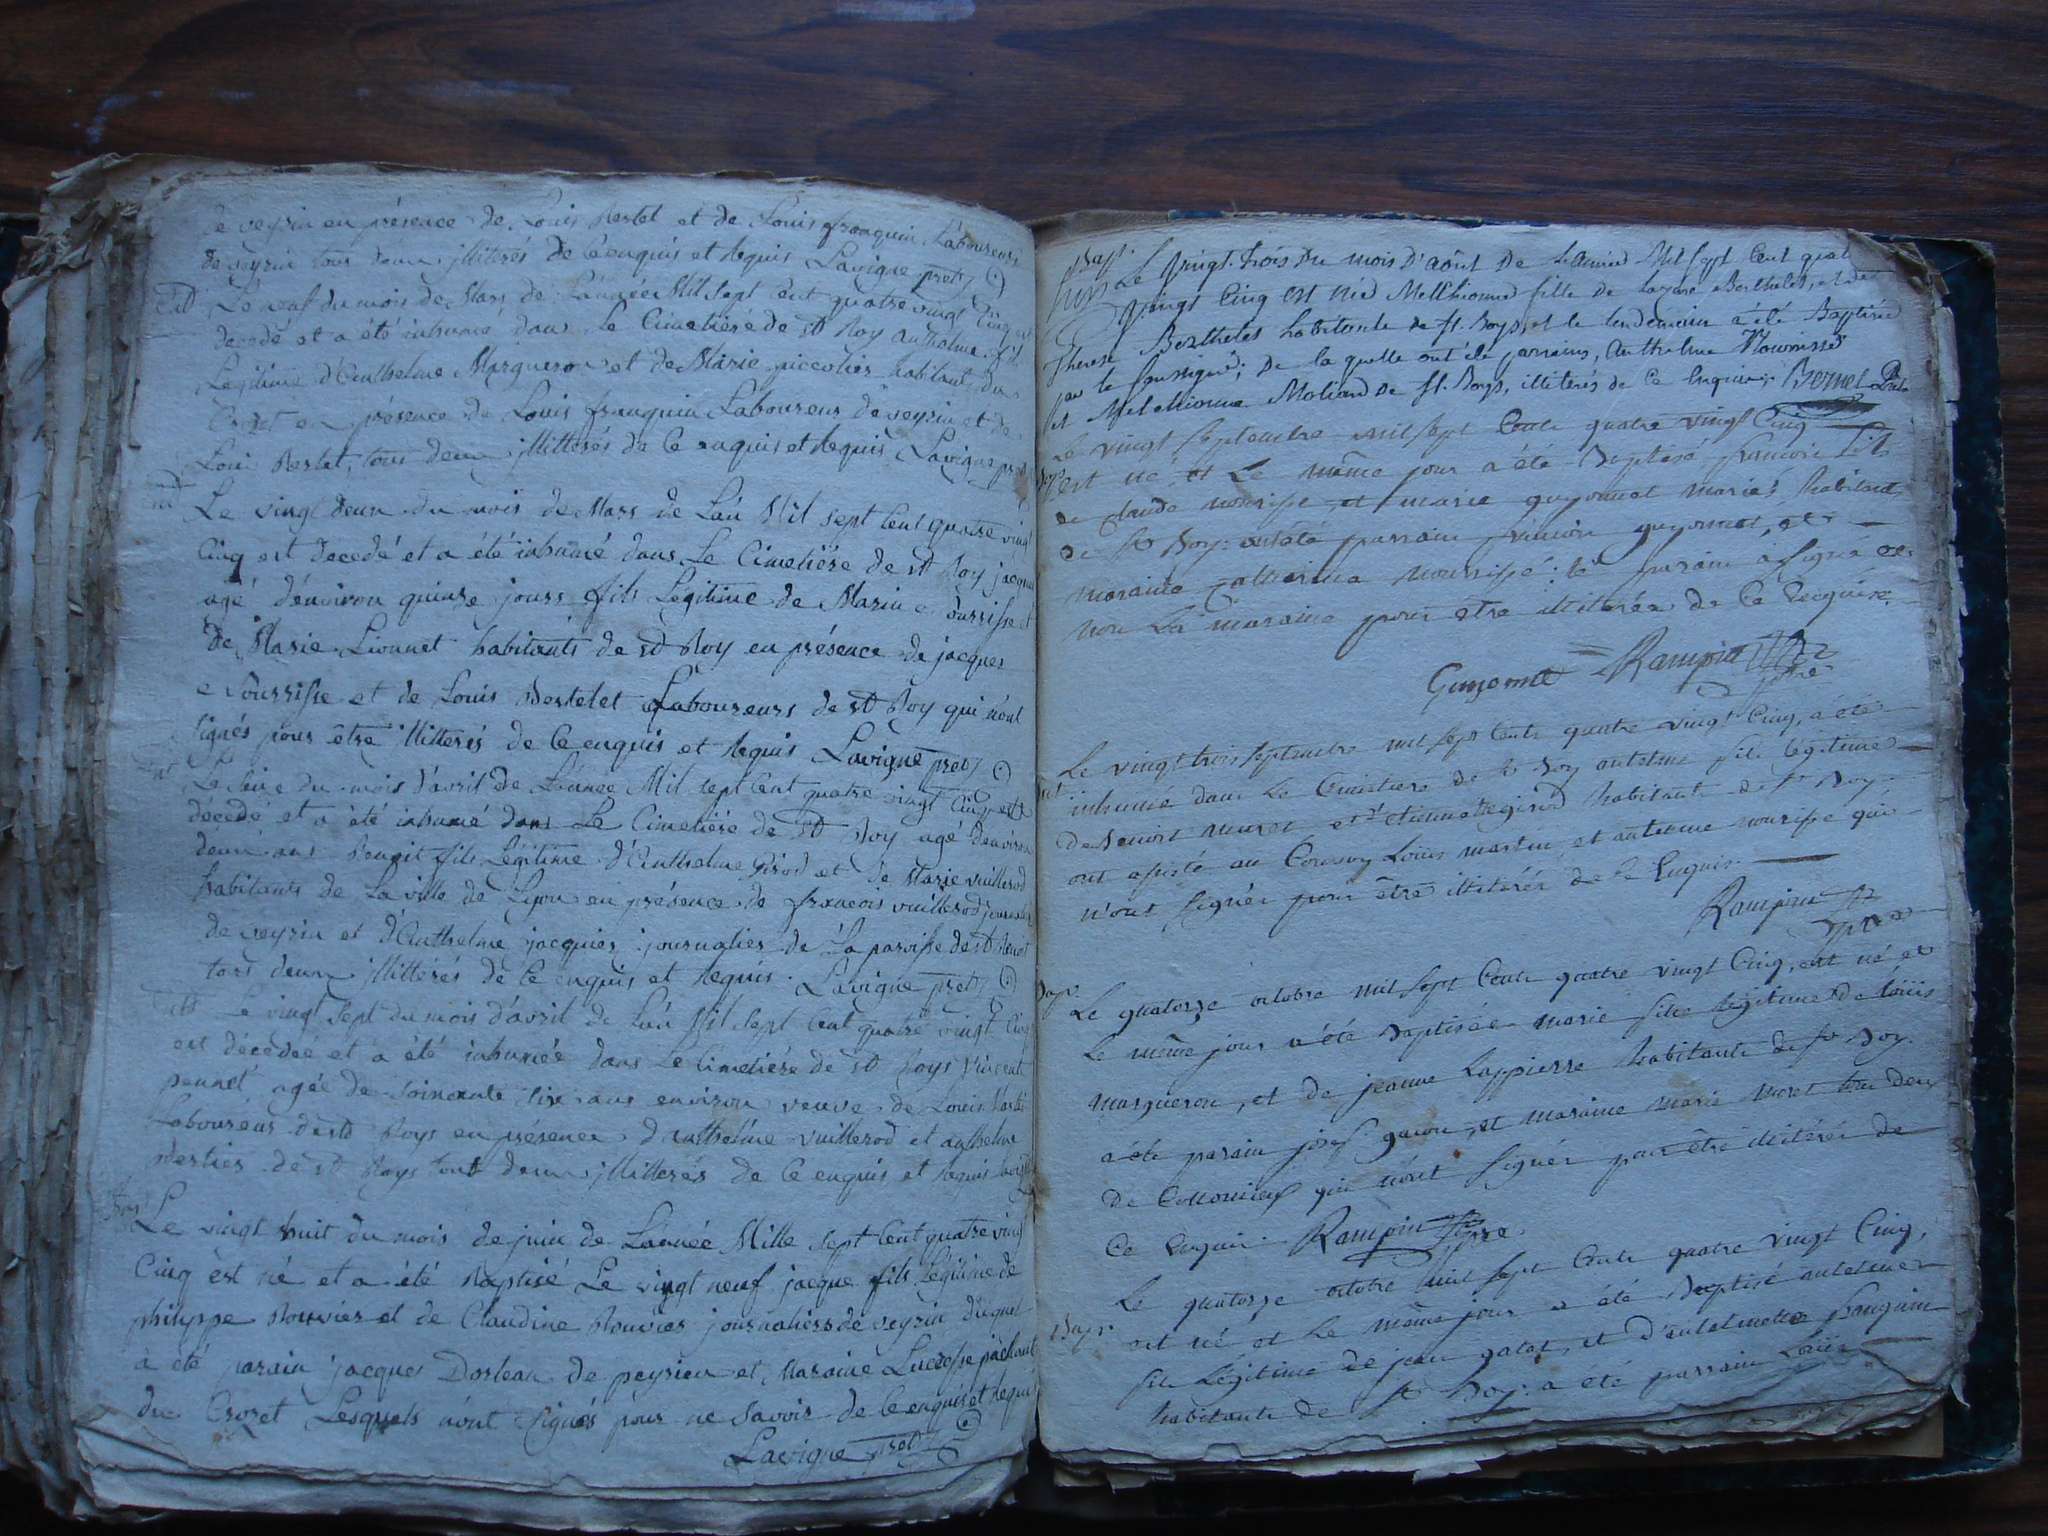 de veyrin en présence de Louis Bertet et de Louis franquin Laboureurs
de veyrin tous deux illiterés de ce enquis et Requis Lavigne pret
Le neuf du mois de Mars de L'année Mil sept cent quatre vingt Cinq est
decedé et a été inhumé dans Le Cimetiére de st Boy anthelme fils
Legitime d'Anthelme Margueron et de Marie piccolier habitants du
Crozet en présence de Louis franquin Laboureur de veyrin et de
Loui Bertet, tous deux illitterés de Ce enquis et Requis Lavigne pret
Le vingt deux du mois de Mars de L'an Mil sept Cent quatre vingt
Cinq est decedé et a été inhumé dans Le Cimetiére de st Boy jacques
agé d'environ quinze jours fils Légitime de Marin nourrisse et
de Marie Lionnet habitants de st Boy en présence de jacques
nourrisse et de Louis Bertelet Laboureurs de st Boy qui n'ont
signés pour être illitterés de Ce enquis et Requis Lavigne pret
Le seize du mois d'avril de L'année Mil sept Cent quatre vingt Cinq est
décedé et a été inhumé dans Le Cimetiére de st Boy agé d'environ
deux ans Benoit fils Légitime d'Anthelme Girod et de Marie vuillerod
habitants de La ville de Lyon en présence de francois vuillerod journalier
de veyrin et d'Anthelme jacquier journalier de La paroisse de st Benoit
tous deux illitterés de Ce enquis et Requis. Lavigne pret
Le vingt sept du mois d'avril de L'an Mil sept Cent quatre vingt Cinq
est décedée et a été inhumée dans Le Cimetiére de st Boys Vincente
pennet agée de soixante six ans environ veuve de Louis
Laboureur de st Boys en présence d'Anthelme vuillerod et anthelme
Bertier de st Boys tout deux illitterés de Ce enquis et Requis
Bap Le vingt huit du mois de juin de L'année Mille sept Cent quatre vingt
Cinq est né et a été Baptisé Le vingt neuf jacque fils Légitime de
philippe Bouvier et de Claudine Bouvier journaliers de veyrin duquel
à été parain jacques Dorleau de peyrieu et Maraine Lucresse pachaut
du Crozet Lesquels n'ont signés pour ne savoir de Ce enquis et Requis
Lavigne pret
Bap. Le vingt-trois Du mois D'août De l'année Mil sept Cent quat
vingt Cinq est née Melchionne fille de Lazare Berthelet, et de
Therese Berthelet habitants de st. Boys, et le lendemain a été Baptisée
par le soussigné; De la quelle ont été parrains, Anthelme Nourrisse
et Melchionne Moliard De st. Boys, illiterés de Ce Enquis. Bornet Prêt.
Le vingt septembre mil sept Cents quatre vingt Cinq
Bap. est né et Le même jour a été Baptisé francois fils
de claude nourisse et marie guyonnet mariés habitants
de st Boy. ont été parrain francois guyonnet, et
maraine catherine nourrisse: le parain a signé et
non La maraine pour être illiterée de Ce Enquise.
Guyonnet Rampin ptre
Le vingt trois septembre mil sept Cents quatre vingt Cinq, a été
inhumé dans Le Cimetiere de st Boy antelme fils legitime
de Benoit muret et d'etiennette girod habitants de st Boy
ont assisté au Convoy Loüis martin, et antelme nourisse qui
n'ont signés pour être illiterés de Ce Enquis.
Rampin ptre
Bap. Le quatorze octobre mil sept Cents quatre vingt Cinq, est né et
Le même jour a été Baptisée marie fille legitime de Loüis
margueron, et de jeanne Lappierre habitants de st Boy.
a été parain josef guion, et maraine marie moret tous deux
de Collomieu qui n'ont signés pour être illiterés de
Ce Enquis. Rampin ptre
Bap. Le quatorze octobre mil sept Cents quatre vingt Cinq,
est né et Le même jour a été Baptisé antelme
fils Légitime de jean galat, et d'antelmette franquin
habitants de st Boy. a été parrain Loüis